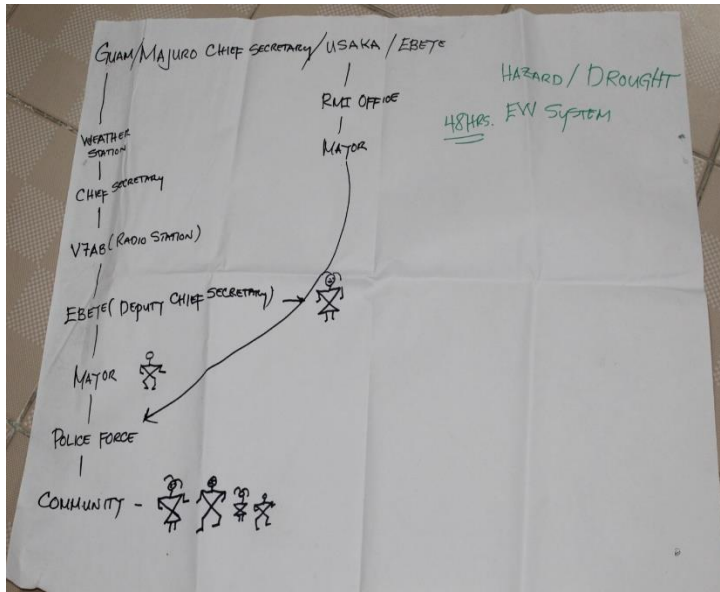 GUAM/MAJURO CHIEF SECRETARY/USAKA/EBETE
HAZARD/DROUGHT
48HRS. EW SYSTEM
RMI OFFICE
MAYOR
WEATHER
STATION
CHIEF SECRETARY
V7AB (RADIO STATION)
EBETE (DEPUTY CHIEF SECRETARY)
MAYOR
POLICE FORCE
COMMUNITY -